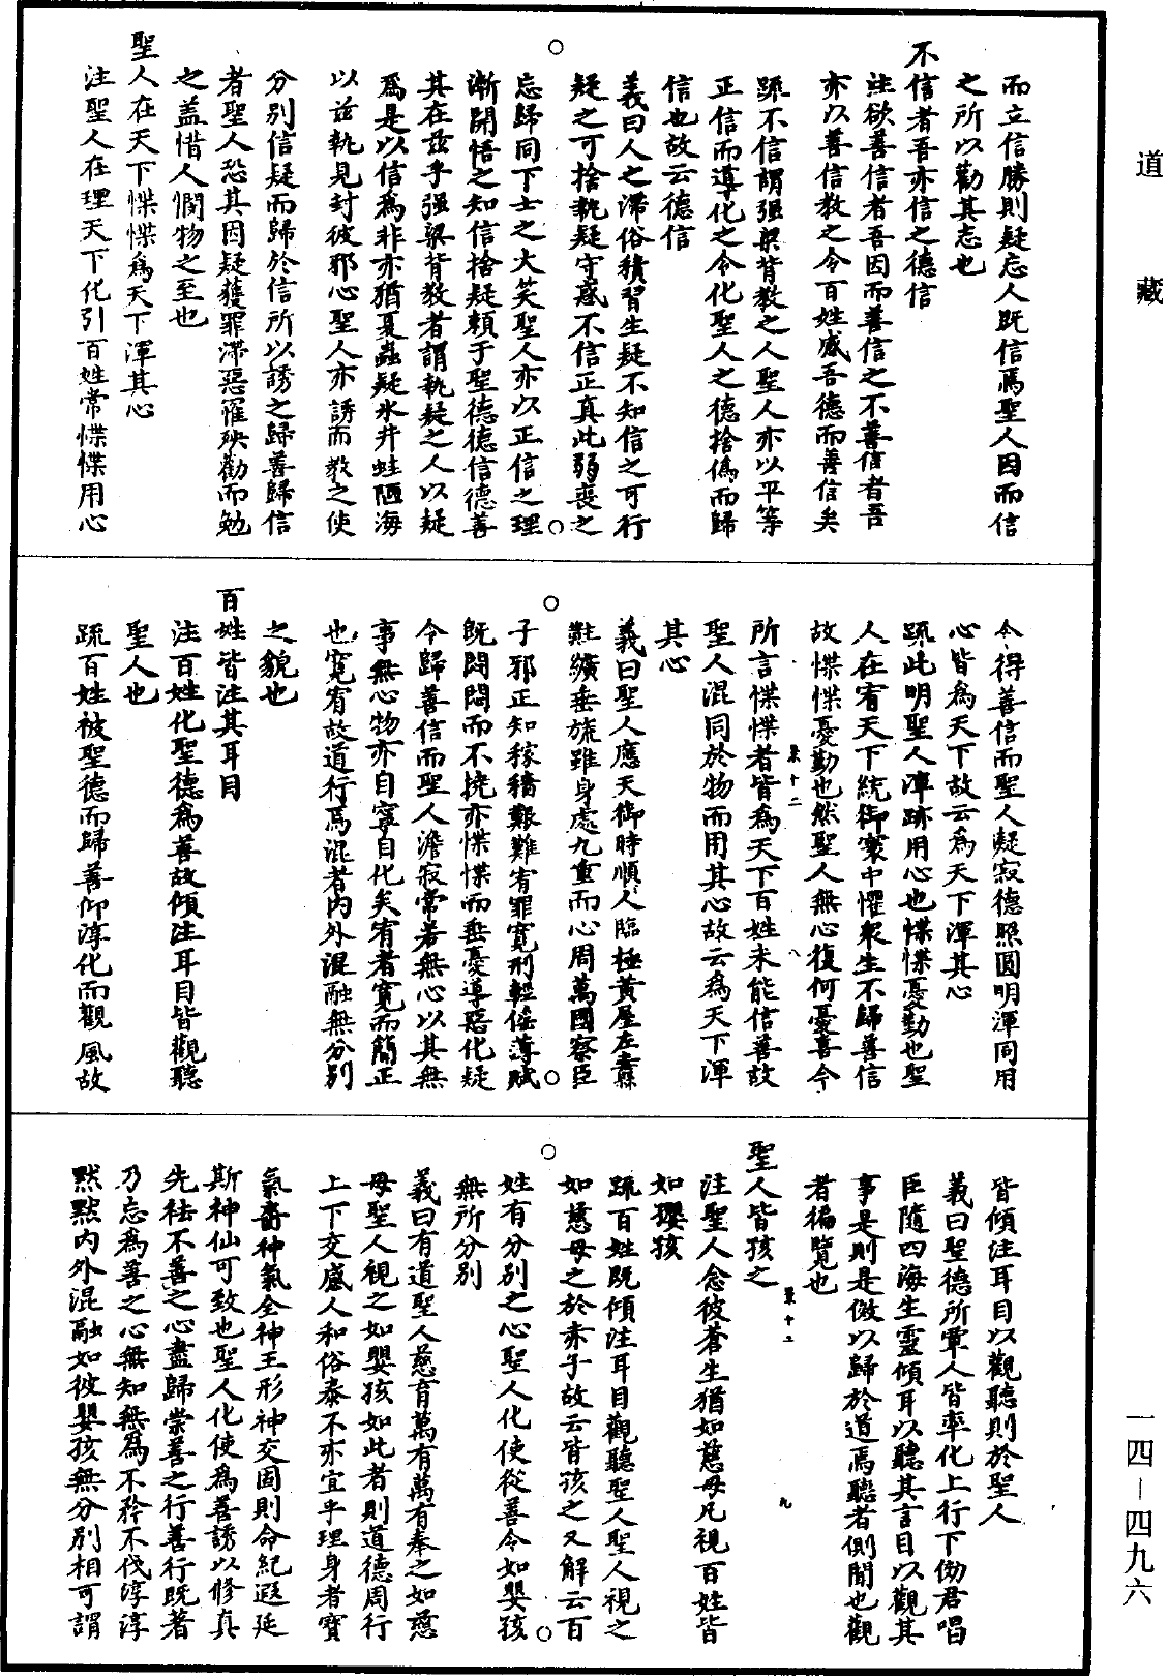 道藏
而立信勝則疑忘人既信焉聖人因而信
之所以勸其志也
不信者吾亦信之德信
注欲善信者吾因而善信之不善信者吾
亦以善信教之令百姓感吾德而善信矣
疏不信謂强梁背教之人聖人亦以平等
正信而導化之令化聖人之德捨僞而歸
信也故云德信
義曰人之滯俗積習生疑不知信之可行
疑之可捨執疑守惑不信正真此弱喪之
忘歸同下士之大笑聖人亦以正信之理
漸開悟之知信捨疑頼于聖德德信德善
其在兹乎强梁背教者謂執疑之人以疑
爲是以信爲非亦猶夏蟲疑氷井蛙陋海
以兹執見封彼邪心聖人亦誘而教之使
分别信疑而歸於信所以誘之歸善歸信
者聖人恐其因疑獲罪滞惡罹殃勸而勉
之盖惜人憫物之至也
聖人在天下惵惵爲天下渾其心
注聖人在理天下化引百姓常惵惵用心
令得善信而聖人凝寂德照圓明渾同用
心皆爲天下故云爲天下渾其心
疏此明聖人渾跡用心也惵惵憂勤也聖
人在宥天下統御寰中懼衆生不歸善信
故惵惵憂勤也然聖人無心復何憂喜今
所言惵惵者皆爲天下百姓未能信善故
聖人混同於物而用其心故云爲天下渾
其心
義曰聖人應天御時順人臨極黄屋左纛
黈纊垂旒雖身處九重而心周萬國察臣
子邪正知稼穡艱難宥罪寬刑輕徭薄賦
既悶悶而不撓亦惵惵而垂憂導惡化疑
令歸善信而聖人澹寂常若無心以其無
事無心物亦自寧自化矣宥者寬而簡正
也寬宥故道行焉混者内外混融無分别
之貌也
百姓皆注其耳目
注百姓化聖德爲善故傾注耳目皆觀聽
聖人也
疏百姓被聖德而歸善仰淳化而觀風故
皆傾注耳目以觀聽則於聖人
義曰聖德所覃人皆率化上行下傚君唱
臣隨四海生靈傾耳以聽其言目以觀其
事是則是傚以歸於道焉聽者側聞也觀
者徧覽也
聖人皆孩之
注聖人念彼蒼生猶如慈母凡視百姓皆
如嬰孩
疏百姓既傾注耳目觀聽聖人聖人視之
如慈母之於赤子故云皆孩之又解云百
姓有分别之心聖人化使從善令如嬰孩
無所分别
義曰有道聖人慈育萬有萬有奉之如慈
母聖人視之如嬰孩如此者則道德周行
上下交感人和俗泰不亦宜乎理身者寳
氣嗇神氣全神王形神交固則命紀遐延
斯神仙可致也聖人化使爲善誘以修真
先袪不善之心盡歸崇善之行善行既著
乃忘爲善之心無知無爲不矜不伐淳淳
默默内外混融如彼嬰孩無分别相可謂
一四—四九六